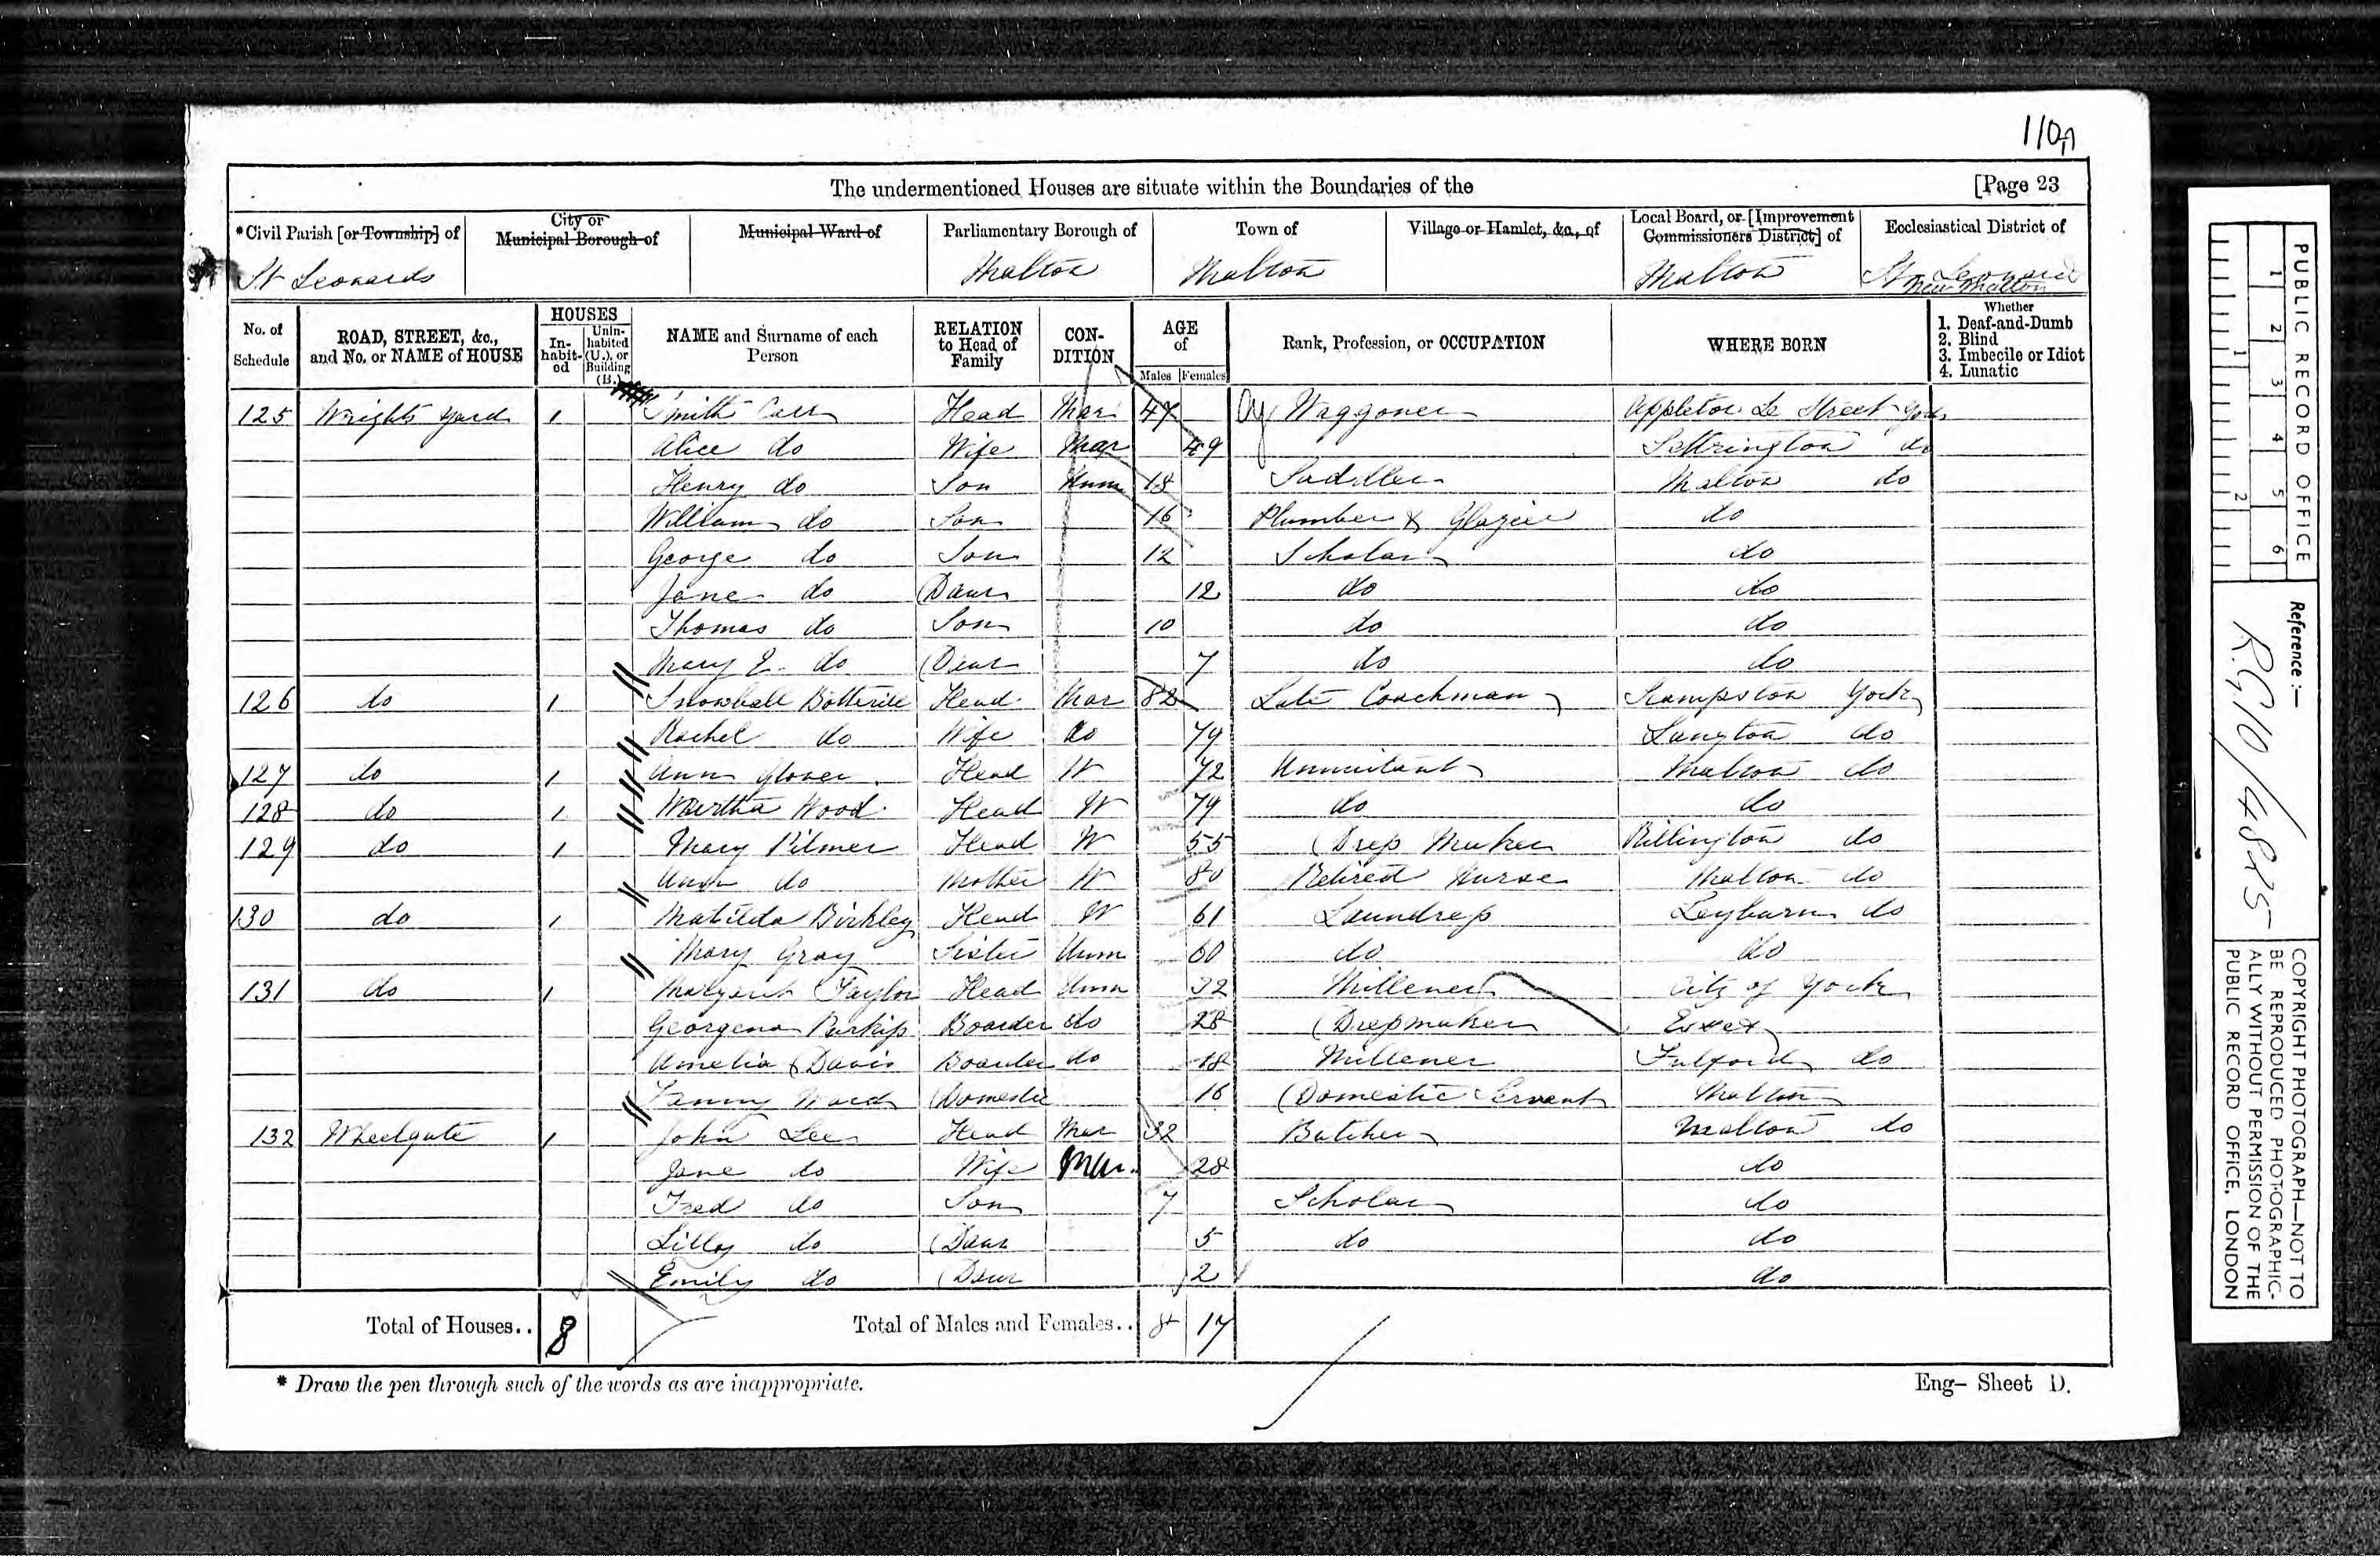 110
The undermentioned Houses are situate within the Boundaries of the [Page 23
*Civil Parish [or Township] of City or Municipal Borough of Municipal Ward of Parliamentary Borough of Town of Village or Hamlet, &c., of Local Board, or [Improvement Commissioners District] of Ecclesiastical District of
St Leonards Malton Malton Malton St Leonard New Malton
No. of Schedule ROAD, STREET, &c., and No. or NAME of HOUSE HOUSES Inhabited Uninhabited (U.), or Building (B.) NAME and Surname of each Person RELATION to Head of Family CONDITION AGE of Males Females Rank, Profession, or OCCUPATION WHERE BORN Whether 1. Deaf-and-Dumb 2. Blind 3. Imbecile or Idiot 4. Lunatic
125 Wrights Yard 1 Smith Carr Head Mar 47 Waggoner Appleton Le Street York
Alice do Wife Mar 49 Settrington do
Henry do Son Unm 18 Sadller Malton do
William do Son 16 Plumber & Glazier do
George do Son 12 Scholar do
Jane do Daur 12 do do
Thomas do Son 10 do do
Mary E. do Daur 7 do do
126 do 1 Snowball Botterill Head Mar 82 Late Coachman Scampston York
Rachel do Wife do 79 Langton do
127 do 1 Ann Glover Head W 72 Annuitant Malton do
128 do 1 Martha Wood Head W 79 do do
129 do 1 Mary Pilmer Head W 55 Dress Maker Rillington do
Ann do Mother W 80 Retired Nurse Malton do
130 do 1 Matilda Birkley Head W 61 Laundress Leyburn do
Mary Gray Sister Unm 60 do do
131 do 1 Margaret Taylor Head Unm 32 Millener City of York
Georgena Boarder do 28 Dressmaker Essex
Amelia Davis Boarder do 18 Millener Fulford do
Fanny Ward Domestic 16 Domestic Servant Malton
132 Wheelgate 1 John Lee Head Mar 32 Butcher Malton do
Jane do Wife Mar. 28 do
Fred do Son 7 Scholar do
Lilley do Daur 5 do do
Emily do Daur 2 do
Total of Houses.. 8 Total of Males and Females.. 8 17
* Draw the pen through such of the words as are inappropriate. Eng- Sheet D.
PUBLIC RECORD OFFICE
1 2 3 4 5 6
1 2
Reference :-
R.G. 10/4825
COPYRIGHT PHOTOGRAPH—NOT TO
BE REPRODUCED PHOTOGRAPHIC-
ALLY WITHOUT PERMISSION OF THE
PUBLIC RECORD OFFICE, LONDON